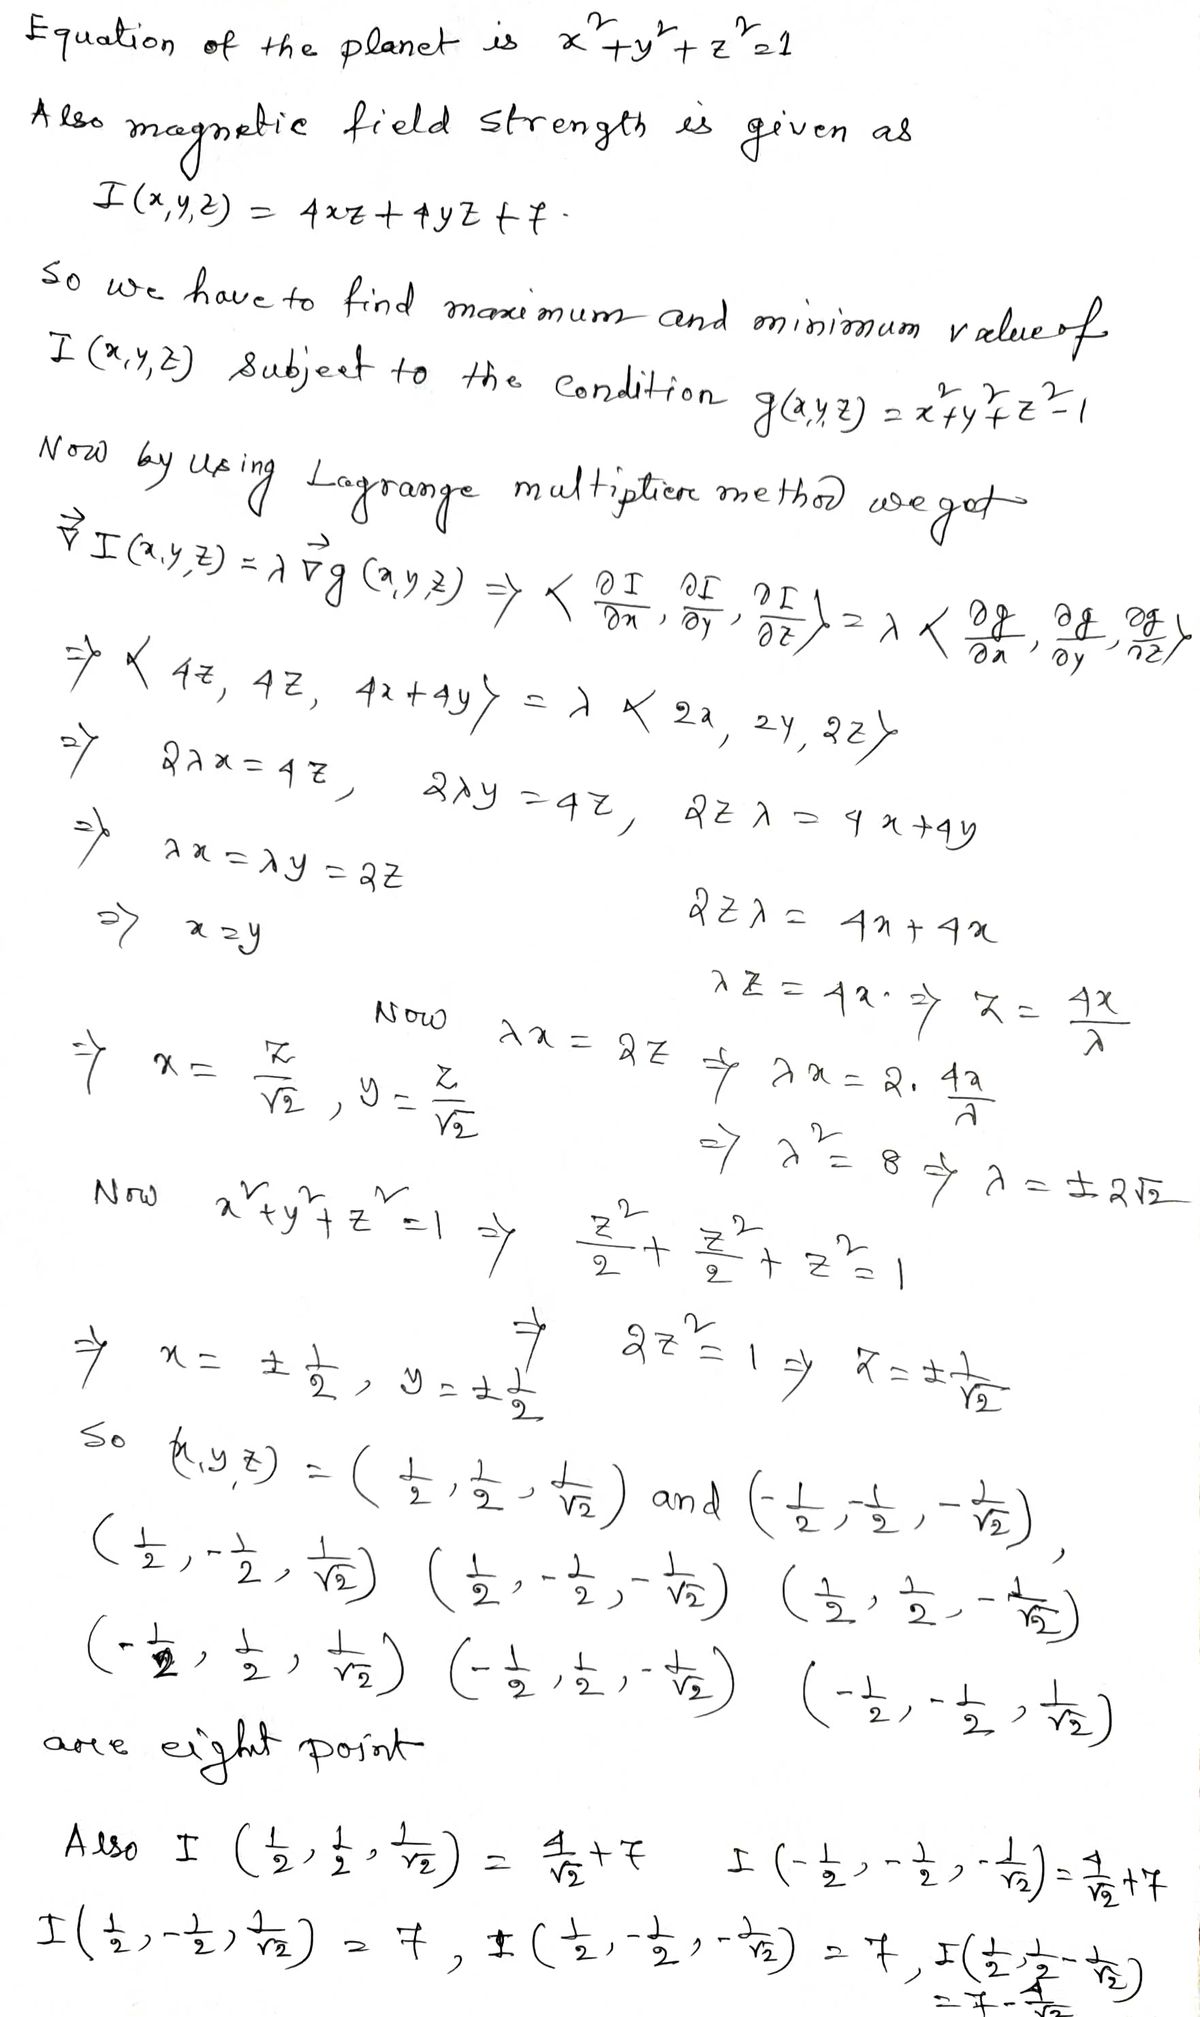 Equation of the planet is x²+y²+z²=1
Also magnetic field strength is given as
I(x,y,z) = 4xz+4yz+7.
So we have to find maximum and minimum value of
I(x,y,z) subject to the condition g(x,y,z) = x²+y²+z²-1
Now by using Lagrange multiplier method we get
∇⃗I(x,y,z) = λ∇⃗g(x,y,z) ⇒ <∂I/∂x, ∂I/∂y, ∂I/∂z> = λ<∂g/∂x, ∂g/∂y, ∂g/∂z>
⇒ <4z, 4z, 4x+4y> = λ<2x, 2y, 2z>
⇒ 2λx=4z, 2λy=4z, 2zλ = 4x+4y
⇒ λx=λy=2z
2zλ = 4x+4x
⇒ x=y
λz = 4x. ⇒ z = 4x/λ
Now λx = 2z ⇒ λx = 2. 4x/λ
⇒ x = z/√2, y = z/√2
⇒ λ² = 8 ⇒ λ = ±2√2
Now x²+y²+z²=1 ⇒ z²/2 + z²/2 + z² = 1
⇒ 2z² = 1 ⇒ z = ±1/√2
⇒ x = ±1/2, y = ±1/2
So (x,y,z) = (1/2, 1/2, 1/√2) and (-1/2, -1/2, -1/√2),
(1/2, -1/2, 1/√2) (1/2, -1/2, -1/√2) (1/2, 1/2, -1/√2)
(-1/2, 1/2, 1/√2) (-1/2, 1/2, -1/√2) (-1/2, -1/2, 1/√2)
are eight point
Also I (1/2, 1/2, 1/√2) = 4/√2+7 I (-1/2, -1/2, -1/√2) = 4/√2+7
I(1/2, -1/2, 1/√2) = 7, I(1/2, -1/2, -1/√2) = 7, I(1/2, 1/2 -1/√2)
= 7-4/√2